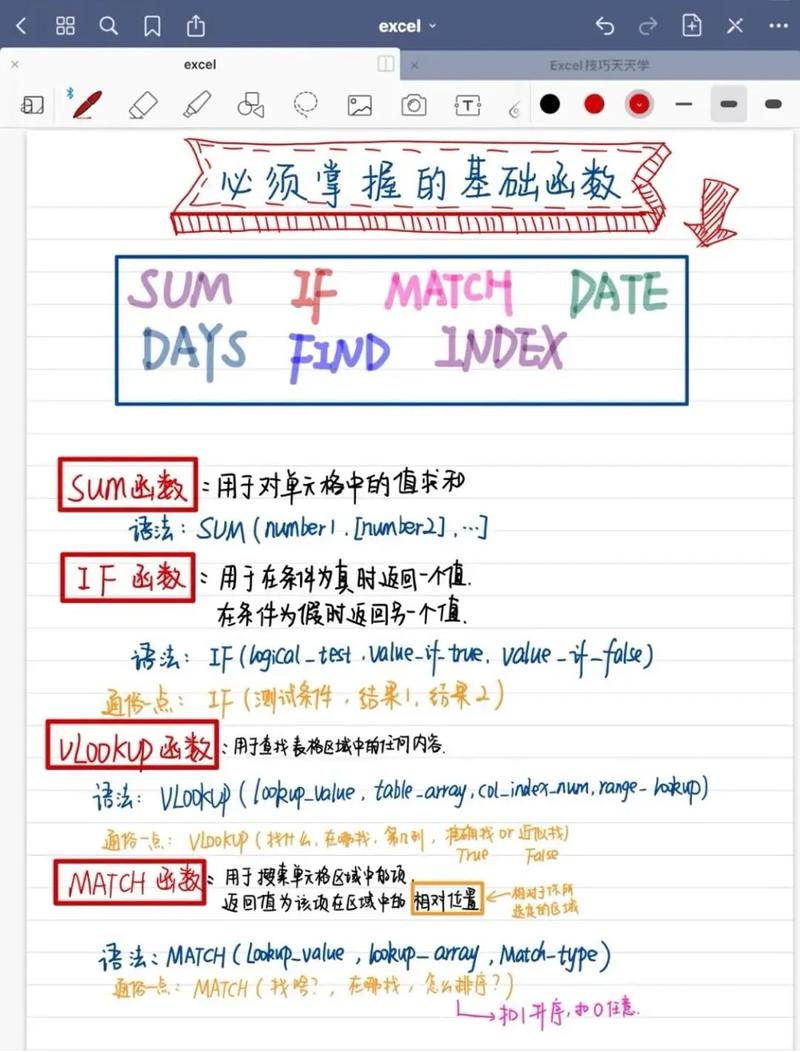 excel
excel
Excel技巧天天学
必须掌握的基础函数
SUM IF MATCH DATE
DAYS FIND INDEX
SUM函数：用于对单元格中的值求和
语法：SUM(number1,[number2],…]
IF 函数：用于在条件为真时返回一个值.
在条件为假时返回另一个值.
语法：IF(logical_test,value_if_true,value_if_false)
通俗一点：IF(测试条件,结果1,结果2)
VLOOKUP函数：用于查找表格区域中的任何内容.
语法：VLOOKUP(lookup_value,table_array,col_index_num,range_lookup)
通俗一点：VLOOKUP(找什么,在哪找,第几列,准确找or近似找)
True False
MATCH函数：用于搜索单元格区域中的项,
返回值为该项在区域中的相对位置
相对于你所
选定的区域
语法：MATCH(Lookup_value,lookup_array,Match-type)
通俗一点：MATCH(找啥?,在哪找,怎么排序?)
扣1升序,扣0任意.